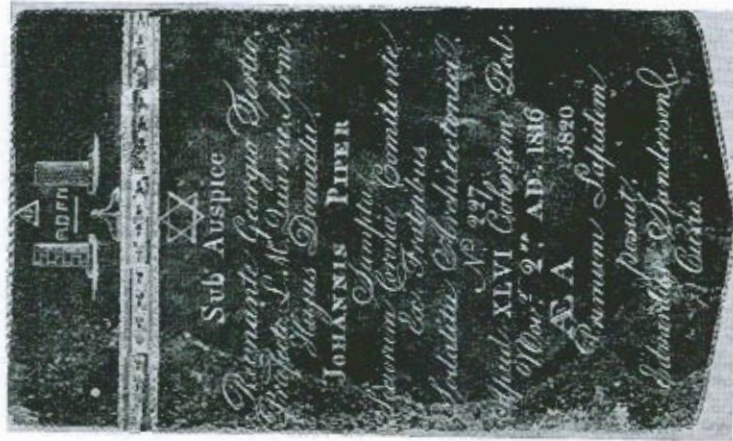 Sub Auspice
Regnante Georgio Tertio,
Præfecto L. Mc Quarrie Arm.
Hujus Domatu,
IOHANNIS PIPER
Sumptus
Suorum Corona Comitante
Ex Fratribus
Soditiæ Architectonicæ
No 227
Apud XLVI Cohortem Ped:
Novr 2nd AD 1816
Æ A 5820
Primum Lapidem
posuit,
Edwardus Sanderson